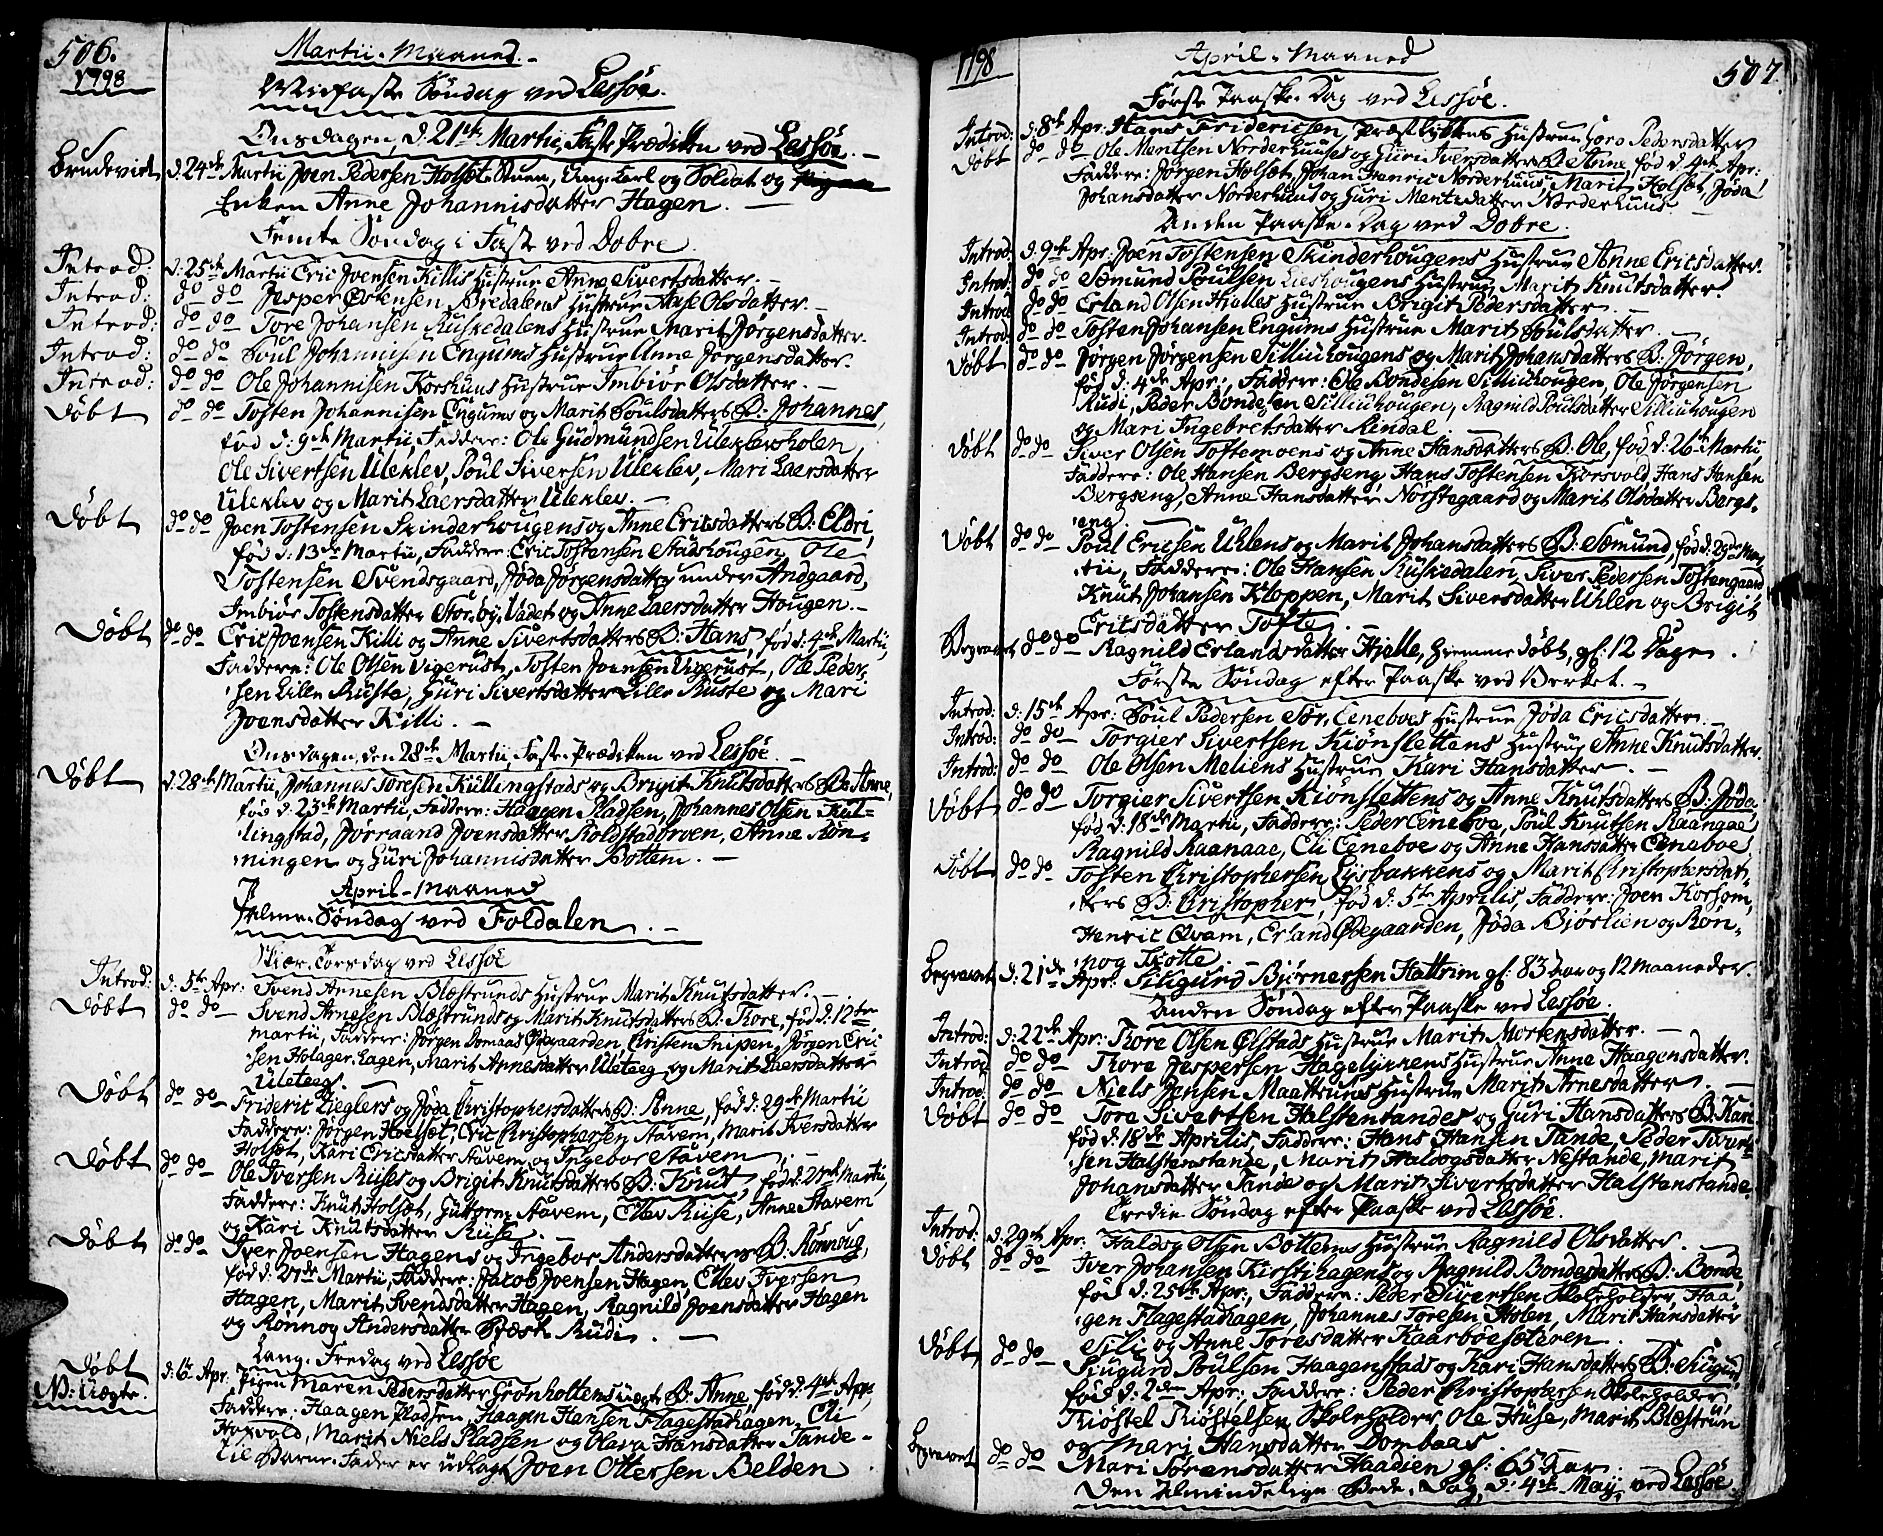 506.
1798
Martii Maaned.
Midfaste Søndag ved Lessøe.
Onsdagen, d. 21de Martii, Faste Prædiken ved Lessøe.
Brudevidt d. 24de Martii Joen Pedersen Holset Stuen, Ung Karl og Soldat og Pigen
Enken Anne Johannisdatter Hagen.
Femte Søndag i Faste ved Dobre.
Introd: d. 25de Martii Eric Joensen Killis Hustrue Anne Sivertsdatter.
Introd: do do Jesper Østensen Bredalens Hustrue Aase Olsdatter.
Introd: do do Tore Johansen Ruskedalens Hustrue Marit Jørgensdatter.
Introd: do do Poul Johannisen Engums Hustrue Anne Jørgensdatter.
Introd: do do Ole Johannisen Korshuus Hustrue Imbiør Olsdatter.
Døbt do do Tosten Johannisen Engums og Marit Poulsdatters B: Johannes,
fød d: 9de Martii, Faddere: Ole Gudmundsen Uleklevsholen
Ole Sivertsen Uleklev, Poul Siversen Uleklev, Mari Laersdatter
Uleklev og Marit Laersdatter Uleklev.
Døbt do do Joen Tostensen Skinderhougens og Anne Ericsdatters B: Eldri,
fød d: 13de Martii, Faddere: Eric Tostensen Stadshougen, Ole
Tostensen Svendsgaard, Jøda Jørgensdatter under Andgaard,
Imbiør Tostensdatter Storøy, Vadet og Anne Laersdatter Hougen.
Døbt do do Eric Joensen Killi og Anne Sivertsdatters B: Hans, fød d. 4de Martii,
Faddere: Ole Olsen Vigerust, Tosten Joensen Vigerust, Ole Peder-
sen Lille Ruste, Guri Sivertsdatter Lille Ruste og Mari
Joensdatter Killi.
Onsdagen, den 28de Martii, Faste Prædiken ved Lessøe
Døbt d. 28de Martii, Johannes Toresen Kullingstads og Brigit Knutsdatters B: Anne,
fød d. 23de Martii, Faddere: Haagen Pladsen, Johannes Olsen Kul-
lingstad, Jørraand Joensdatter Koldstadsroen, Anne Røn-
ningen og Guri Johannisdatter Bottem.
April-Maaned
Palme-Søndag ved Foldalen.
Skiær-Torsdag ved Lessøe
Introd: d. 5te Apr: Svend Arnesen Blæstruds Hustrue Marit Knutsdatter.
Døbt do do Svend Arnesen Blæstruds og Marit Knutsdatters B: Thore, fød d. 12te
Martii, Faddere: Jørgen Domaas Øvegaarden, Christen Snipen, Jørgen Eric-
sen Holager-hagen, Marit Arnesdatter Uleteeg og Marit Laersdatter
Uleteeg.
Døbt do do Frideric Zieglers og Jøda Christophersdatters B: Anne, fød d: 29de Martii
Faddere: Jørgen Holset, Eric Christophersen Stavem, Marit Iversdatter
Holset, Kari Ericsdatter Stavem og Ingebor Stavem.
Døbt do do Ole Iversen Ruises og Brigit Knutsdatters B: Knut, fød d. 21de Martii,
Faddere: Knut Holset, Guttorm Stavem, Ellev Ruise, Anne Stavem
og Kari Knutsdatter Ruise.
Døbt do do Iver Joensen Hagens og Ingebor Andersdatters B: Rønnoug,
fød d. 27de Martii, Faddere: Jacob Joensen Hagen, Ellev Iversen
Hagen, Marit Svendsdatter Hagen, Ragnild Joensdatter Hagen
og Rønnog Andersdatter Rudi.
Lang-Fredag ved Lessøe
Døbt d. 6te Apr. Pigen Maren Pedersdatter Grønholtens uægte B: Anne, fød d. 4de Apr:
N: Uægte. Faddere: Haagen Pladsen, Haagen Hansen Flagestadhagen, Eli
Horvold, Marit Niels Pladsen og Olava Hansdatter Tande-
Til Barne-Fader er udlagt Joen Ottersen Belden
1798
April-Maaned
507.
Første Paaske-Dag ved Lessøe.
Introd: d: 8de Apr: Hans Fridericsen, Præstbyttens Hustrue Goro Pedersdatter
Døbt do do Ole Mentsen Norderhuuses og Guri Iversdatters B. Anne, fød d. 4de Apr:
Faddere: Jørgen Holset, Johan Henric Norderhuus, Marit Holset, Jøda
Johansdatter Norderhuus og Guri Mentsdatter Norderhuus.
Anden Paaske-Dag ved Dobre.
Introd: d. 9de Apr: Joen Tostensen Skinderhougens Hustrue Anne Ericsdatter.
Introd: do do Semund Poulsen Lieshougens Hustrue Marit Knutsdatter.
Introd: do do Erland Olsen Hielles Hustrue Brigit Pedersdatter.
Introd: do do Tosten Johansen Engums Hustrue Marit Poulsdatter.
Døbt do do Jørgen Jørgensen Silliuhougens og Marit Johansdatters B: Jørgen,
fød d: 4de Apr:, Faddere: Ole Bondesen Silliuhougen, Ole Jørgensen
Rudi, Peder Bondesen Silliuhougen, Ragnild Poulsdatter Silliuhougen
og Mari Ingebretsdatter Rindal.
Døbt do do Siver Olsen Toftemoens og Anne Hansdatters B. Ole, fød d: 26de Martii,
Faddere: Ole Hansen Bergseng, Hans Tostensen Korsvold, Hans Hansen
Bergseng, Anne Hansdatter Norstegaard og Marit Olsdatter Bergs-
eng.
Døbt do do Poul Ericsen Uhlens og Marit Johansdatters B: Semund, fød d. 29de Mar-
tii, Faddere: Ole Hansen Ruskedalen, Siver Pedersen Tostengaard
Knut Johansen Kloppen, Marit Siversdatter Uhlen og Brigit
Ericsdatter Tofte.
Begravet do do Ragnild Erlandsdatter Hielle, hiemmedøbt, gl: 12 Dage.
Første Søndag efter Paaske ved Verket.
Introd: d. 15de Apr: Poul Pedersen Sør-Ceneboes Hustrue Jøda Ericsdatter.
Introd: do do Torgier Sivertsen Kiønslettens Hustrue Anne Knutsdatter.
Introd: do do Ole Olsen Meliens Hustrue Kari Hansdatter.
Døbt do do Torgier Sivertsen Kiønslettens og Anne Knutsdatters B: Jøda,
fød d. 18de Martii, Faddere: Peder Ceneboe, Poul Knutsen Raanaae
Ragnild Raanaae, Eli Ceneboe og Anne Hansdatter Ceneboe
Døbt do do Tosten Christophersen Lysbakkens og Marit Christophersdat-
ters B: Christopher, fød d: 5te Aprilis, Faddere: Joen Korsom,
Henric Qvam, Erland Øvegaarden, Jøda Bjørlien og Røn-
nog Trotte.
Begravet d. 21de Apr: Siugurd Bjørnersen Hattrim gl: 83 Aar og 12 Maaneder.
Anden Søndag efter Paaske ved Lessøe.
Introd: d. 22de Apr: Thore OlsenØlstads Hustrue Marit Mortensdatter.
Introd: do do Thore Jespersen Hagelykkens Hustrue Anne Haagensdatter.
Introd: do do Niels Jensen Maattuens Hustrue Marit Arnesdatter.
Døbt do do Tore Sivertsen Halstenstandes og Guri Hansdatters B: Kari
fød d. 18de Aprilis, Faddere: Hans Hansen Tande, Peder Sivert-
sen Halstenstande, Marit Haldogsdatter Nestande, Marit
Johansdatter Tande og Marit Sivertsdatter Halstenstande.
Tredie Søndag efter Paaske ved Lessøe.
Introd: d. 29de Apr: Haldog Olsen Bottems Hustrue Ragnild Olsdatter.
Døbt do do Iver Johansen Kirstihagens og Ragnild Bondesdatters B: Bonde,
fød d. 25de Apr:, Faddere: Peder Sivertsen Skoleholder, Haa-
gen Flagestadhagen, Johannes Toresen Holen, Marit Hansdatter
Sili og Anne Toresdatter Kaarbøesæteren.
Døbt do do Siugurd Poulsen Haagenstads og Kari Hansdatters B: Siugurd,
fød d: 2den Apr: Faddere: Peder Christophersen Skoleholder,
Kiøstel Kiøstelsen Skoleholder, Ole Huse, Marit Blæstrun
og Mari Hansdatter Dombaas.
Begravet do do Mari Sørensdatter Haadien gl: 65 Aar.
Den Almindelige Bede-Dag, d. 4de May, ved Lessøe.